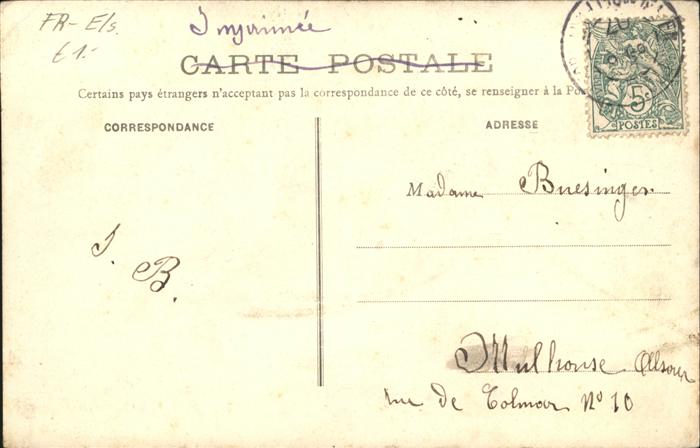 FR- E/s.
£1.-
Imprimée
CARTE POSTALE
Certains pays étrangers n'acceptent pas la correspondance de ce côté, se renseigner à la
CORRESPONDANCE
ADRESSE
Madame Buesinger
J. B.
Mulhouse Alsace
rue de Colmar No 10
5
POSTES